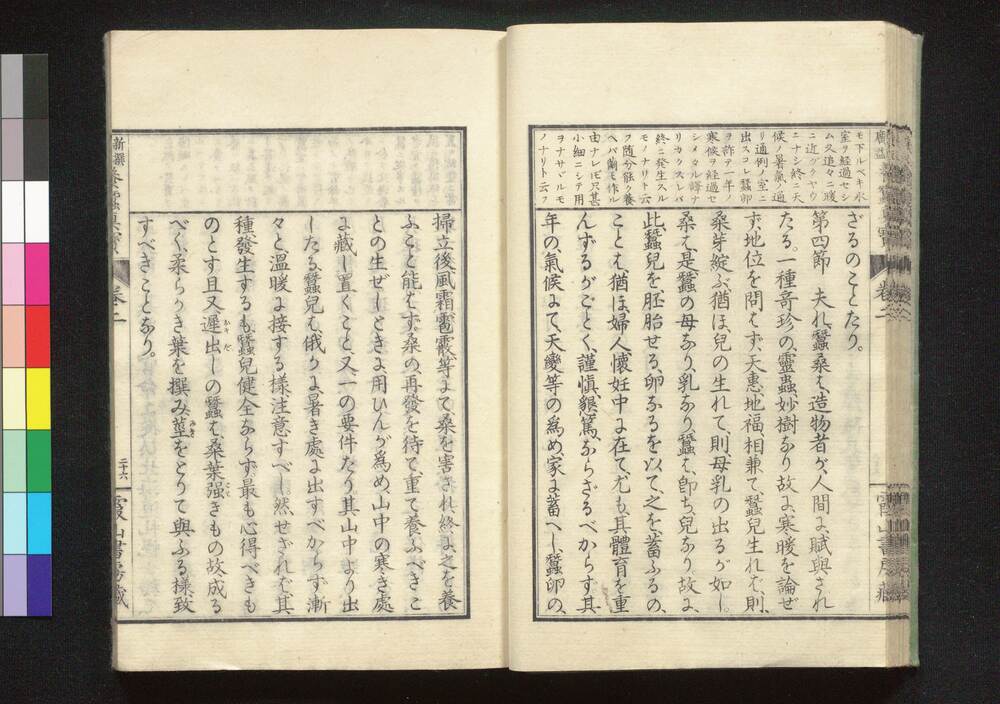 モ下ルベキ氷
室ヲ經過セシ
ム久追々ニ暖
ニ近ヅクヤウ
ニナシ終ニ天
候ノ暑氣ノ適
リ通例ノ室ニ
出スコレ蠶卵
ヲ詐テ一年ノ
寒候ヲ經過セ
シメタル譯ナ
リカクスレバ
終ニ發生スル
モノナリト云
フ隨分能ク養
ヘバ繭モ作ル
由ナレ𪜈只甚
小細ニシテ用
ヲナサヾルモ
ノナリト云フ
ざるのことたり。
第四節　夫れ蠶桑は、造物者が、人間に賦與され
たる。一種奇珍の、靈蟲、妙樹なり故に、寒暖を論ぜ
ず、地位を問はず、天惠、地福相兼て、蠶兒生れば、則、
桑芽綻ぶ、猶ほ、兒の生れて、則、母乳の出るが如し。
桑は、是、蠶の母なり、乳なり、蠶は、卽ち兒なり、故に、
此蠶兒を、胚胎せる、卵なるを以て、之を、蓄ふるの、
ことは、猶ほ、婦人、懷妊中に在て、尤も、其體育を重
んずるがごとく、謹愼、懇篤ならざるべからす、其
年の、氣候にて、天變等の爲め、家に蓄へし、蠶卵の、
卷二
霞山書房藏
掃立後風霜雹霰等にて、桑を害され終に之を、養
ふこと能はず、桑の、再發を待て、重て養ふべきこ
との生ぜしときに用ひんが爲め山中の寒き處
に藏し置くこと、又、一の要件たり、其山中より出
したる、蠶兒は、俄かに暑き處に出すべからず漸
々と溫暖に接する樣注意すべし然せざれば其
種、發生するも、蠶兒健全ならず最も心得べきも
のとす且又遲出しの蠶は、桑葉强きもの故成る
べく、柔らかき葉を撰み莖をとりて與ふる樣致
すべきことなり。
新撰養蠶眞寶
卷二
二十六
霞山書房藏